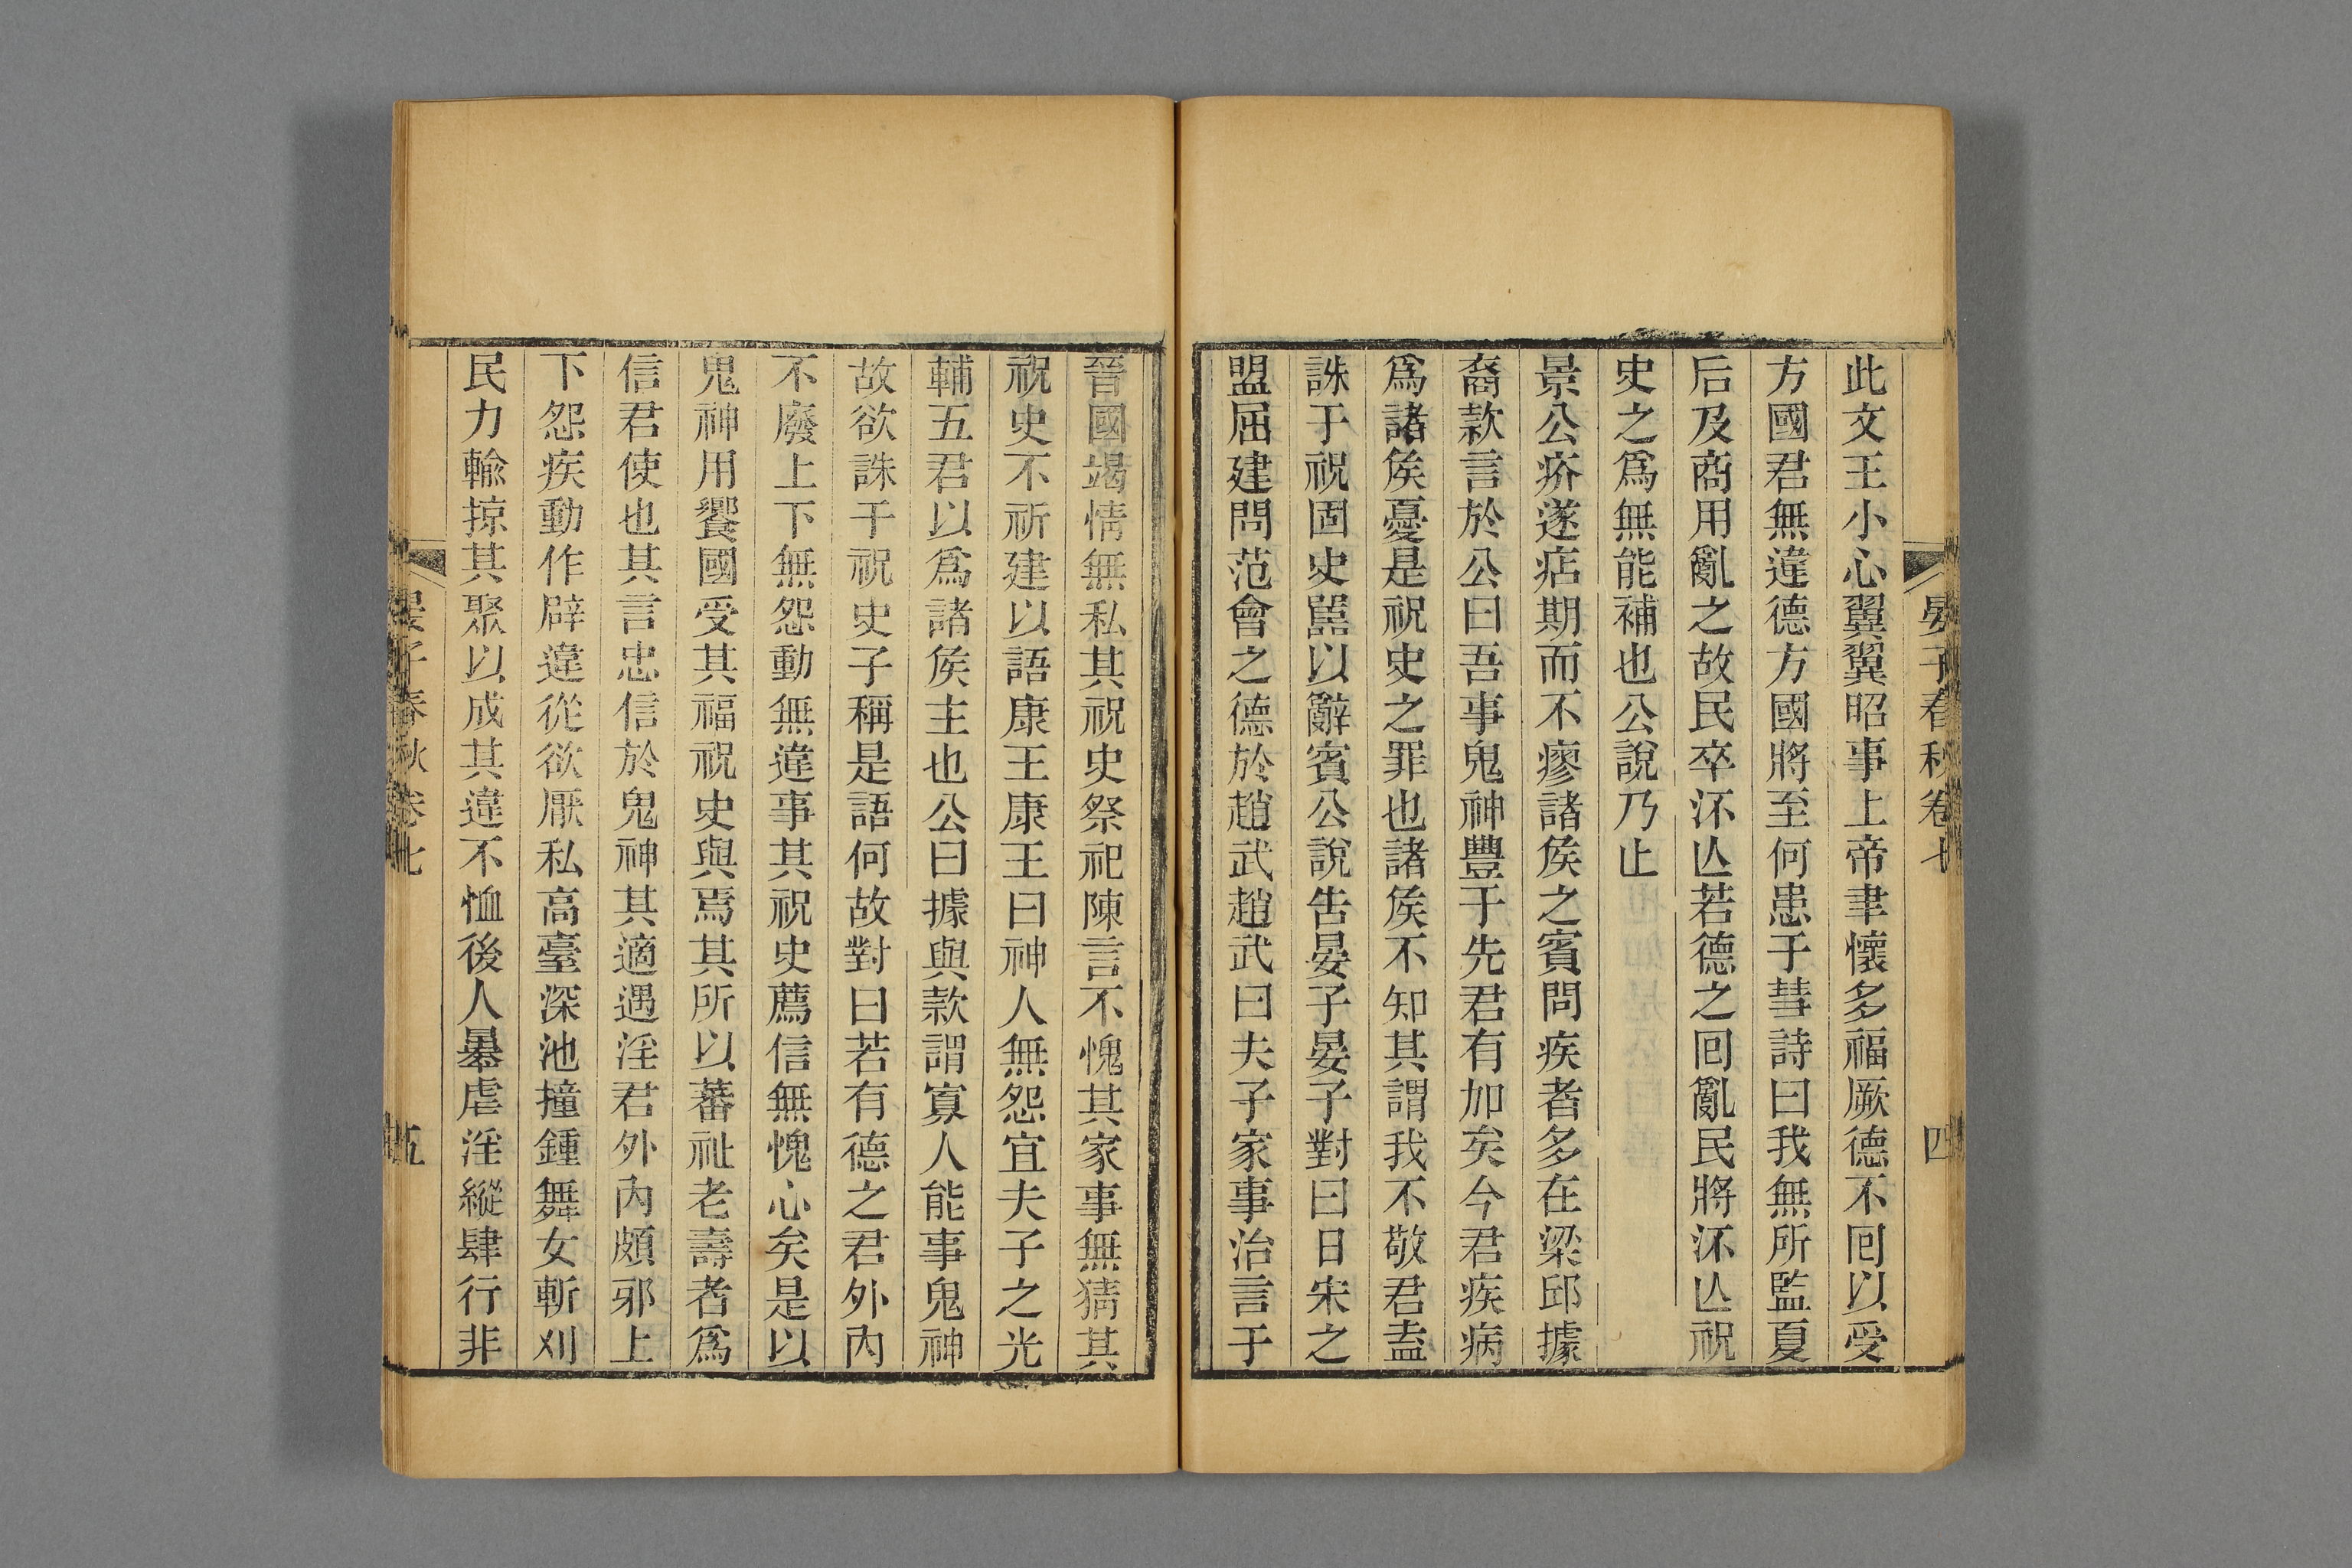 晏子春秋卷七
四
此文王小心翼翼昭事上帝聿懷多福厥德不回以受
方國君無違德方國將至何患于彗詩曰我無所監夏
后及商用亂之故民卒流亾若德之回亂民將流亾祝
史之爲無能補也公說乃止
景公疥遂痁期而不瘳諸矦之賓問疾者多在梁邱據
裔款言於公曰吾事鬼神豐于先君有加矣今君疾病
爲諸矦憂是祝史之罪也諸矦不知其謂我不敬君盍
誅于祝固史嚚以辭賓公說告晏子晏子對曰日宋之
盟屈建問范會之德於趙武趙武曰夫子家事治言于
晉國竭情無私其祝史祭祀陳言不愧其家事無猜其
祝史不祈建以語康王康王曰神人無怨宜夫子之光
輔五君以爲諸矦主也公曰據與款謂寡人能事鬼神
故欲誅于祝史子稱是語何故對曰若有德之君外內
不廢上下無怨動無違事其祝史薦信無愧心矣是以
鬼神用饗國受其福祝史與焉其所以蕃祉老壽者爲
信君使也其言忠信於鬼神其適遇淫君外內頗邪上
下怨疾動作辟違從欲厭私高臺深池撞鍾舞女斬刈
民力輸掠其聚以成其違不恤後人暴虐淫縱肆行非
晏子春秋卷七
五